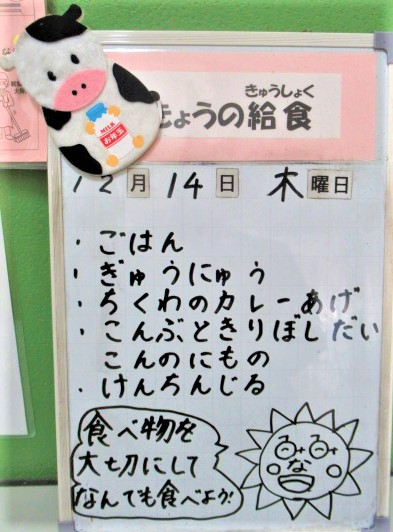 きゅうしょく
きょうの給食
MILK
お年玉
12月14日 木曜日
・ごはん
・ぎゅうにゅう
・ちくわのカレーあげ
・こんぶときりぼしだい
こんのにもの
・けんちんじる
食べ物を
大切にして
なんでも食べよう!
るるな